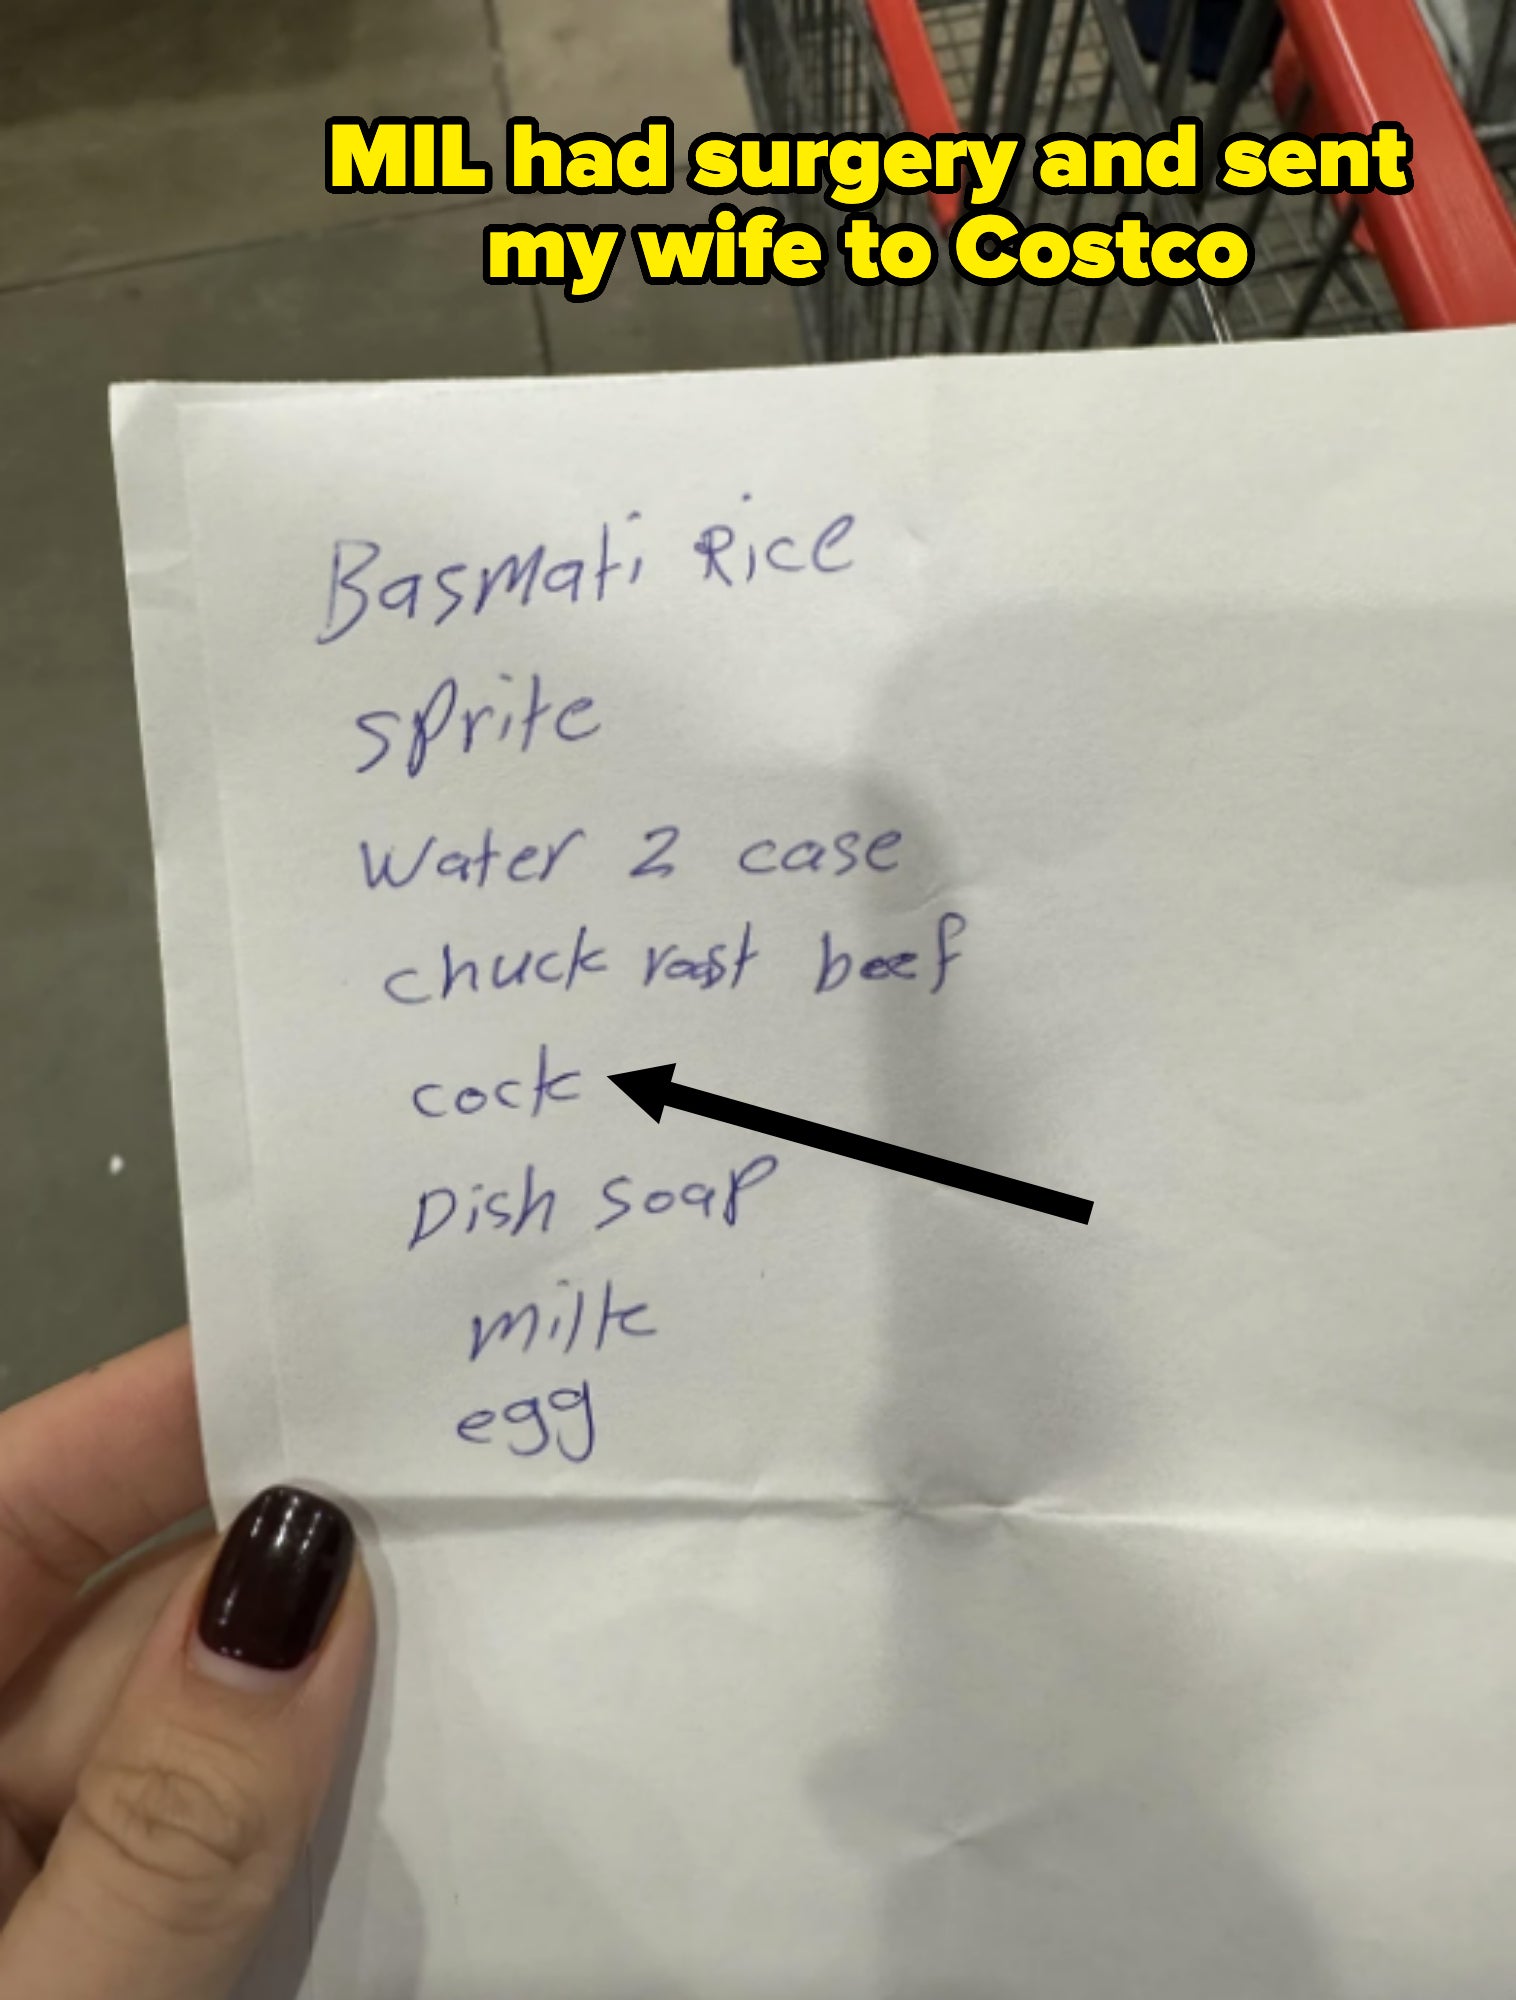 MIL had surgery and sent
my wife to Costco
Basmati Rice
sprite
Water 2 case
chuck rost beef
cock
Dish soap
milk
egg